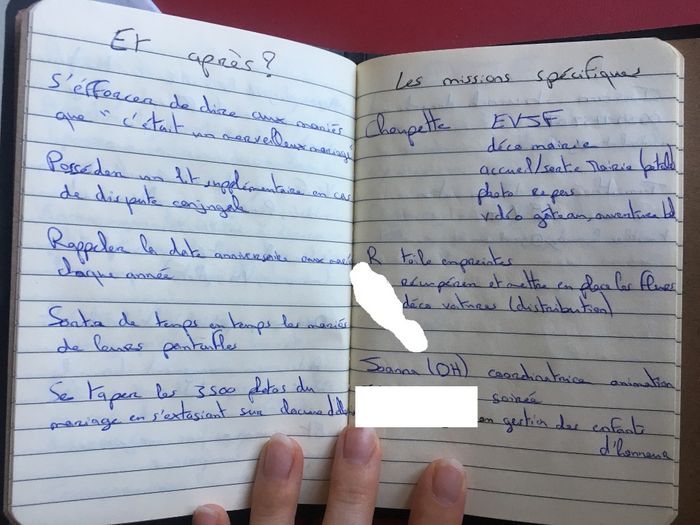 Et après?
S'efforcer de dire aux mariés
que "c'était un merveilleux mariage
Posséder un lit supplémentaire en cas
de dispute conjugale
Rappeler la date anniversaire aux
chaque année
Sortir de temps en temps les mariés
de leurs pantoufles
Se taper les 3500 photos du
mariage en s'extasiant sur chacune d'elles
Les missions spécifiques
Choupette EVJF
déco mairie
accueil/sortie Mairie
photo repas
vidéo gâteau, ouverture bal
R toile empreintes
récupérer et mettre en place les fleurs
déco voitures (distribution)
(DH) coordinatrice animation
soirée
gestion des enfants
d'honneur